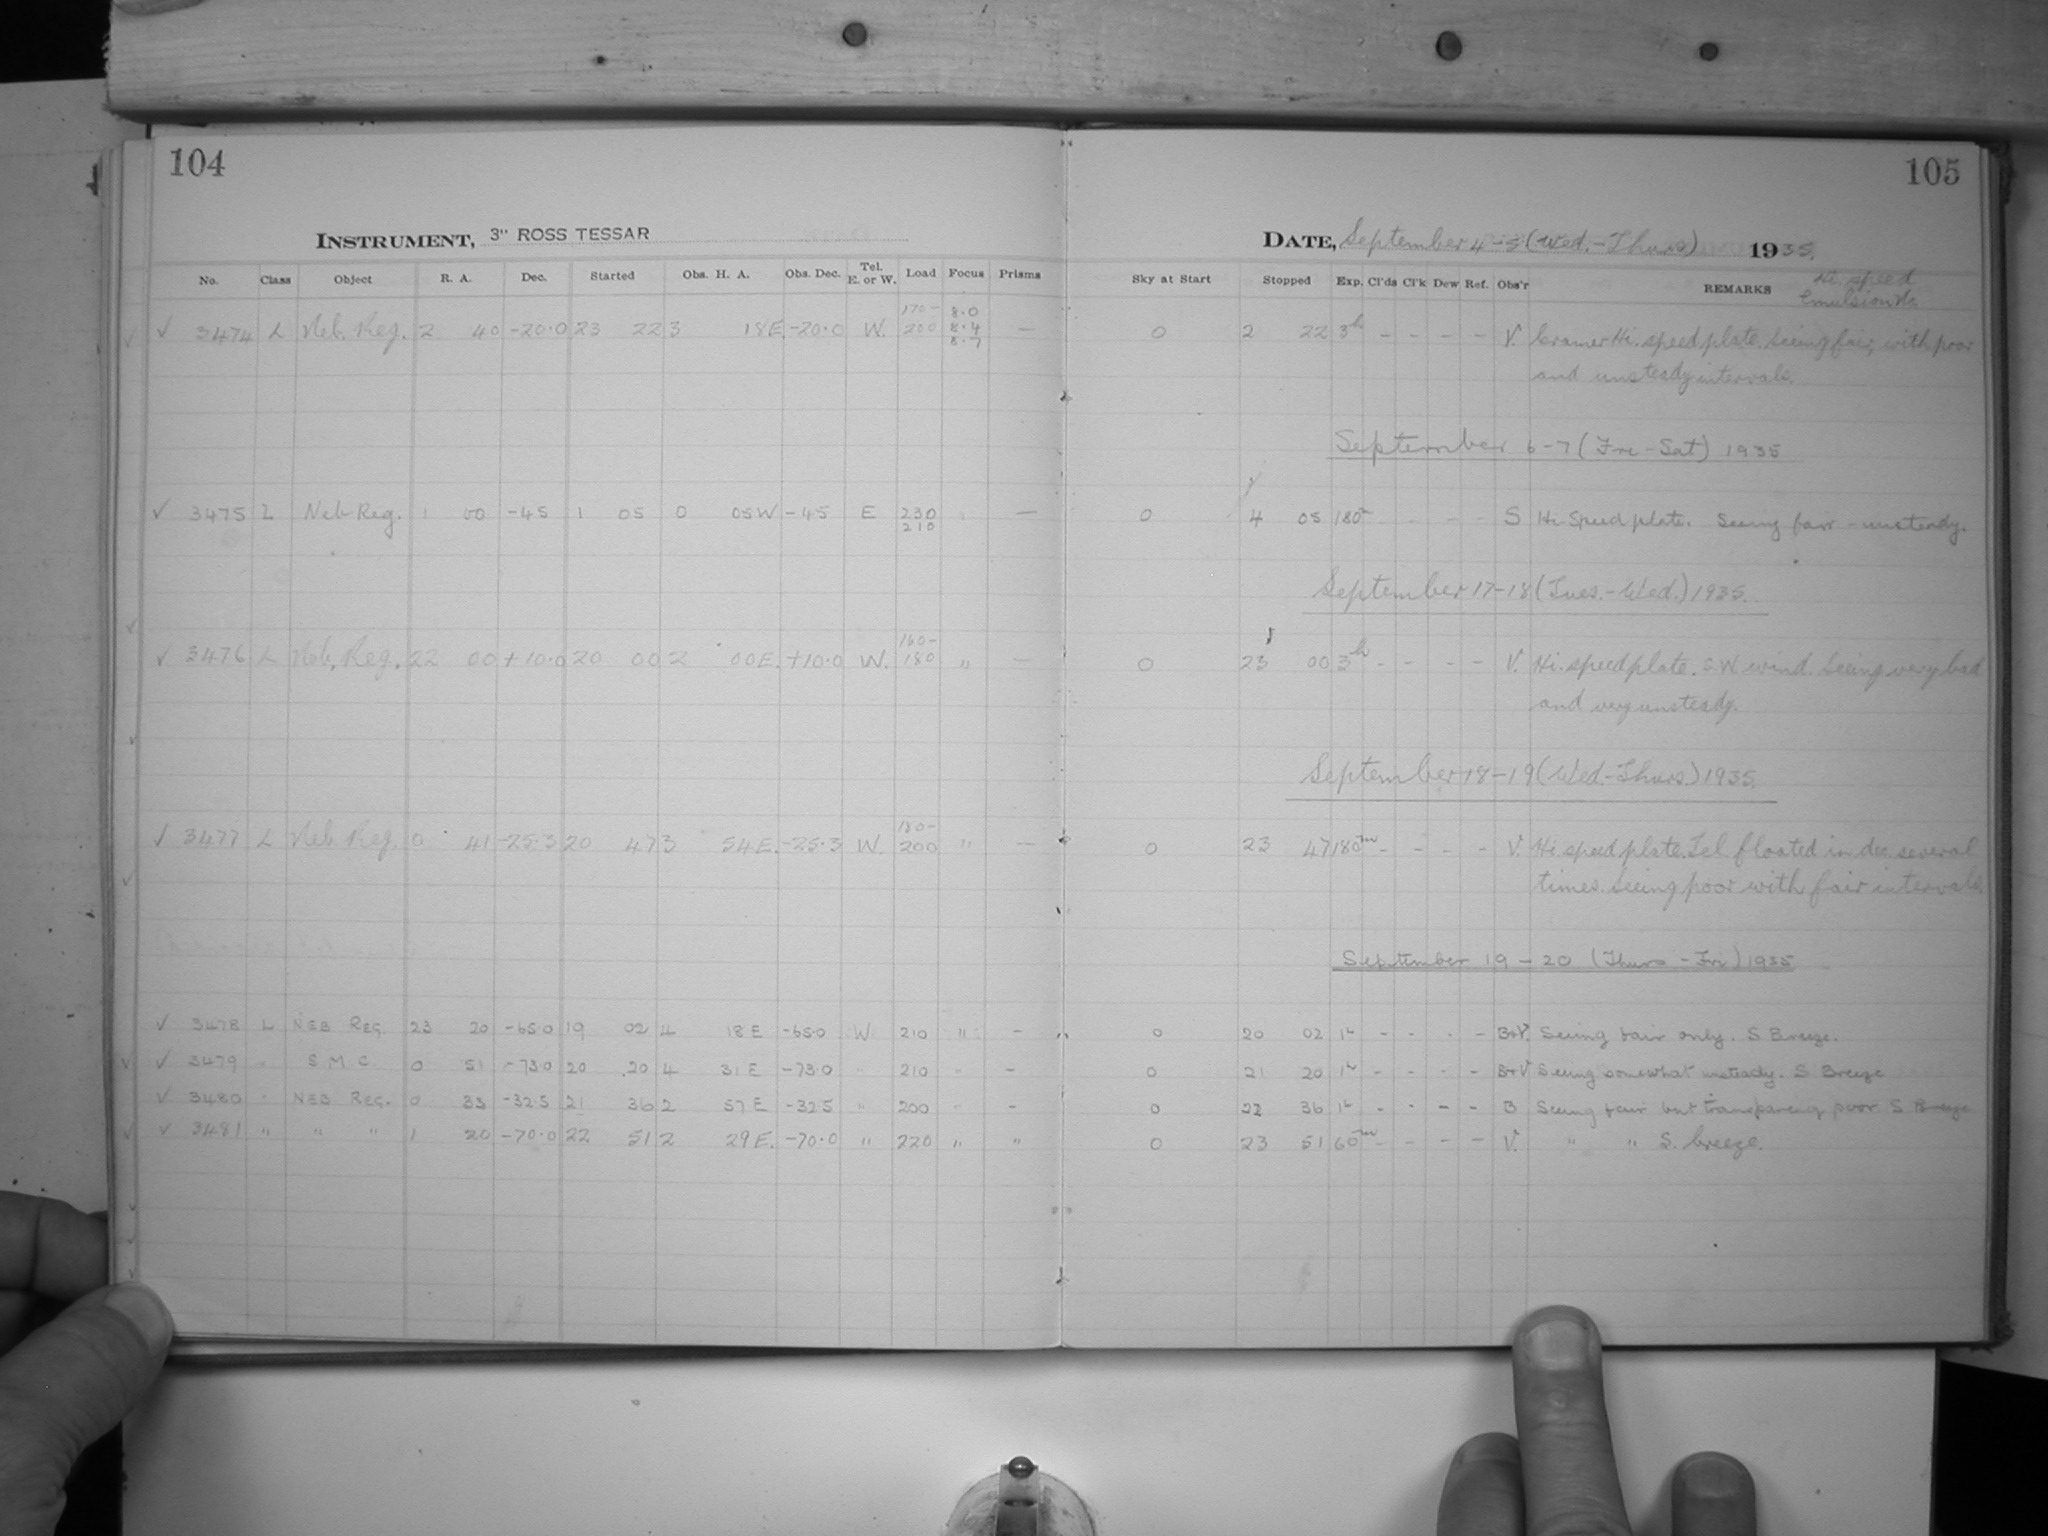 104
105
INSTRUMENT, 3" ROSS TESSAR
DATE, September 4-5 (Wed.-Thurs) 1935.
No. Class Object R. A. Dec. Started Obs. H. A. Obs. Dec. Tel. E. or W. Load Focus Prisms Sky at Start Stopped Exp. Cl'ds Cl'k Dew Ref. Obs'r REMARKS Hi. speed
Emulsion No.
170- 8.0
✓ 3474 L Neb. Reg. 2 40 -20.0 23 22 3 18 E. -20.0 W. 200 8.4 — 0 2 22 3h - - - - V. Cramer Hi. speed plate. Seeing fair, with poor
8.7
and unsteady intervals.
September 6-7 (Fri-Sat) 1935
✓ 3475 L Neb Reg. 1 00 -45 1 05 0 05 W -45 E 230 — 0 4 05 180m - - - - S Hi-Speed plate. Seeing fair - unsteady.
210
September 17-18 (Tues.-Wed.) 1935.
160-
✓ 3476 L Neb. Reg. 22 00 +10.0 20 00 2 00 E. +10.0 W. 180 " — 0 23 00 3h - - - - V. Hi. speed plate. S.W. wind. Seeing very bad
and very unsteady.
September 18-19 (Wed-Thurs) 1935.
180-
✓ 3477 L Neb Reg. 0 41 -25.3 20 47 3 54 E. -25.3 W. 200 " — 0 23 47 180m - - - - V. Hi. speed plate. Tel. floated in dec. several
times. Seeing poor with fair intervals.
September 19-20 (Thurs-Fri) 1935
✓ 3478 L NEB REG 23 20 -65.0 19 02 4 18 E -65.0 W 210 " - 0 20 02 1h - - - - B+V. Seeing fair only. S Breeze.
✓ 3479 " S M C 0 51 -73.0 20 20 4 31 E -73.0 " 210 - - 0 21 20 1h - - - - B+V Seeing somewhat unsteady. S Breeze
✓ 3480 " NEB REG. 0 33 -32.5 21 36 2 57 E -32.5 " 200 - - 0 22 36 1h - - - - B Seeing fair but transparency poor S Breeze
✓ 3481 " " " 1 20 -70.0 22 51 2 29 E. -70.0 " 220 " " 0 23 51 60m - - - - V. " " S. breeze.